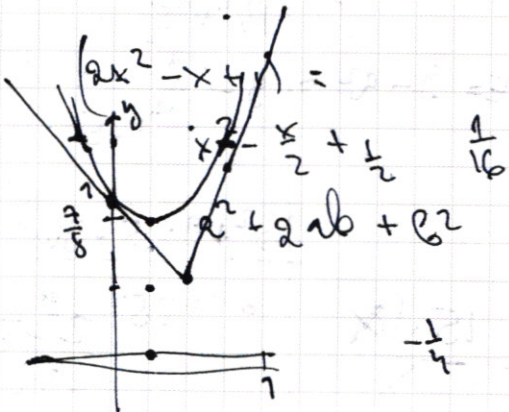 2x² - x + 1) =
y
x² - x/2 + 1/2
1/16
1
7/8
a² + 2ab + b²
-1/4
1